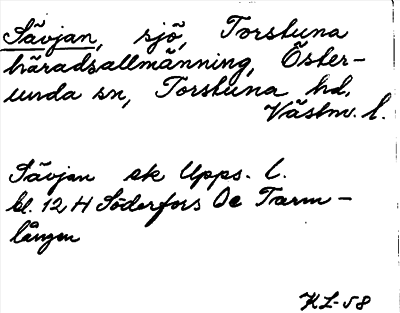 Sävjan, sjö, Torstuna
häradsallmänning, Öster-
unda sn, Torstuna hd,
Västm. l.
Sävjan ek Upps. l.
bl. 12 H Söderfors Oc Tarm-
lången
KL-58